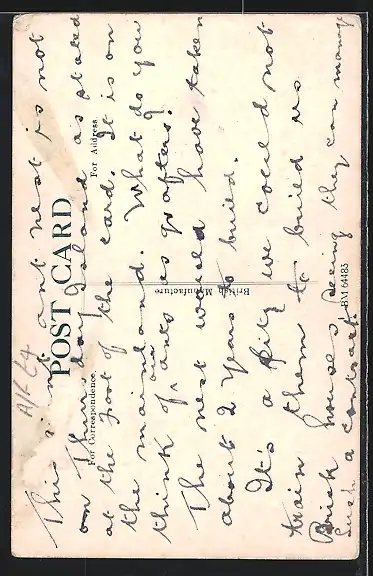 A/- E4
This ant nest is not
on Thursday Island as stated
at the foot of the card. It is on
the mainland. What do you
think of our ants as grafters?
The nest would have taken
about 2 years to build.
It's a pity we could not
train them to build us
Brick houses seeing they can manage
such a contract.
POST CARD
For Correspondence.
For Address
British Manufacture
BM 64483